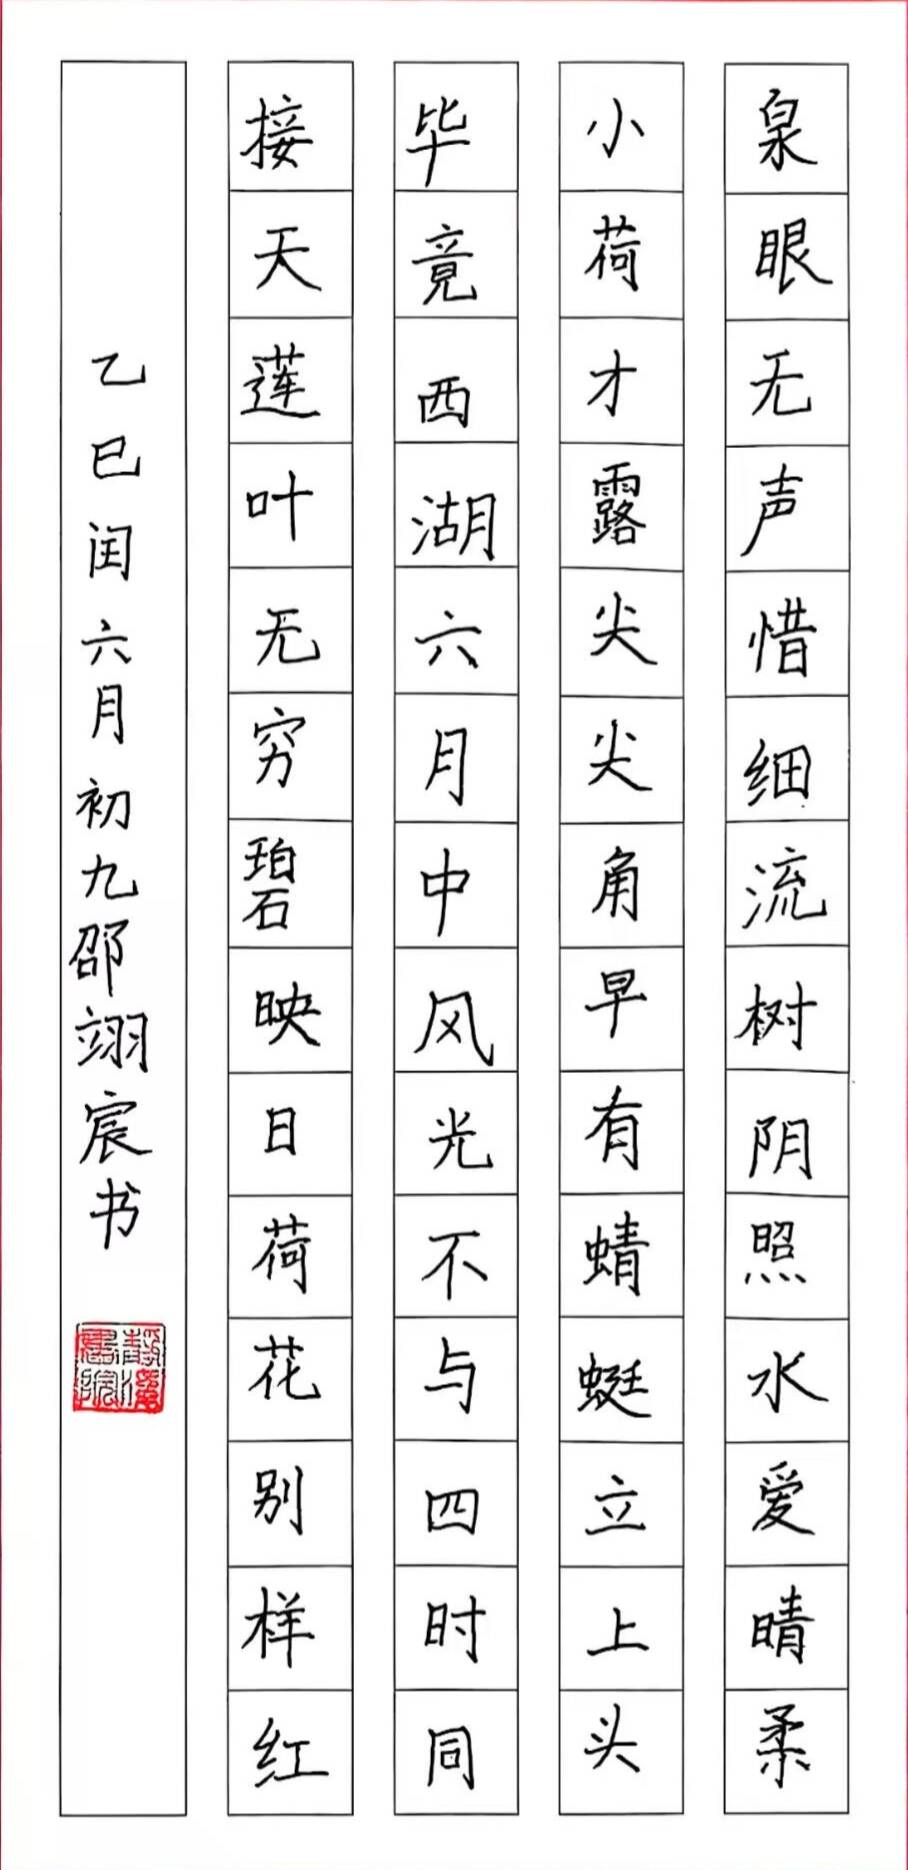 泉眼无声惜细流树阴照水爱晴柔
小荷才露尖尖角早有蜻蜓立上头
毕竟西湖六月中风光不与四时同
接天莲叶无穷碧映日荷花别样红
乙巳闰六月初九邵翊宸书